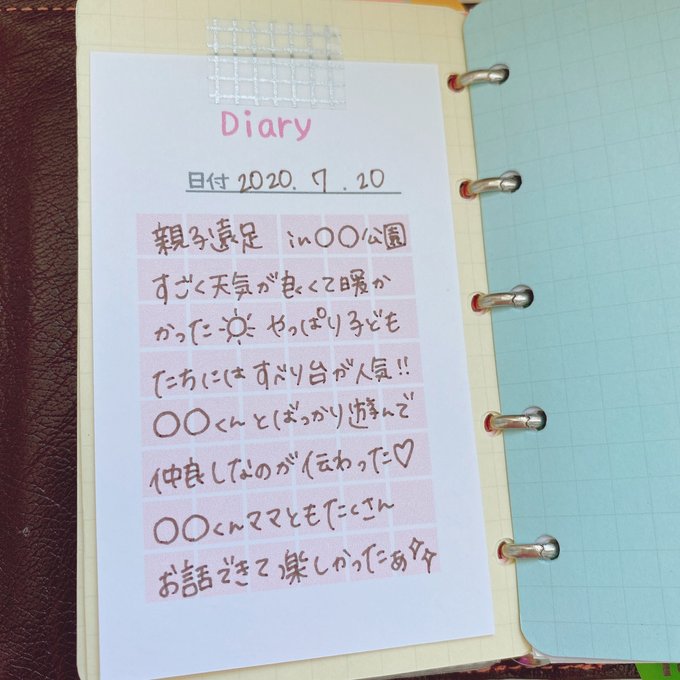 Diary
日付 2020. 7 . 20
親子遠足 in〇〇公園
すごく天気が良くて暖か
かった☼ やっぱり子ども
たちにはすべり台が人気!!
〇〇くんとばっかり遊んで
仲良しなのが伝わった♡
〇〇くんママともたくさん
お話できて楽しかったぁ✧✧